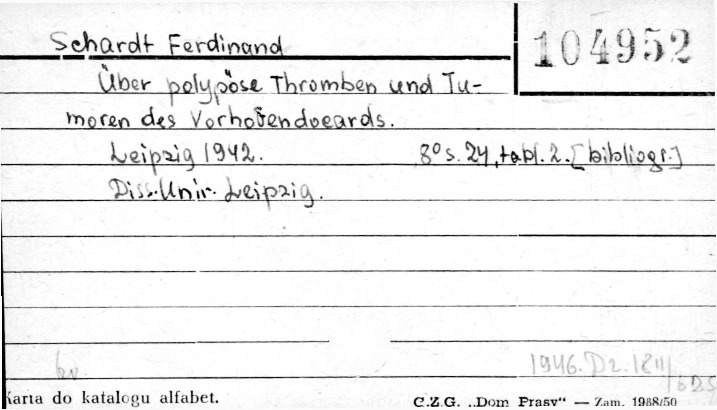 Schardt Ferdinand
104952
Über polypöse Thromben und Tu-
moren des Vorhofendocards.
Leipzig 1942. 8° s. 24, tabl. 2. [bibliogr.]
Diss. Univ. Leipzig.
1946. Dz. 1811/625
Karta do katalogu alfabet.
C.Z.G. „Dom Prasy" — Zam. 1968/50